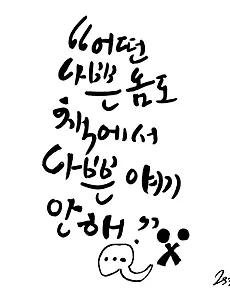 “어떤
나쁜 놈도
책에서
나쁜 얘기
안해.”